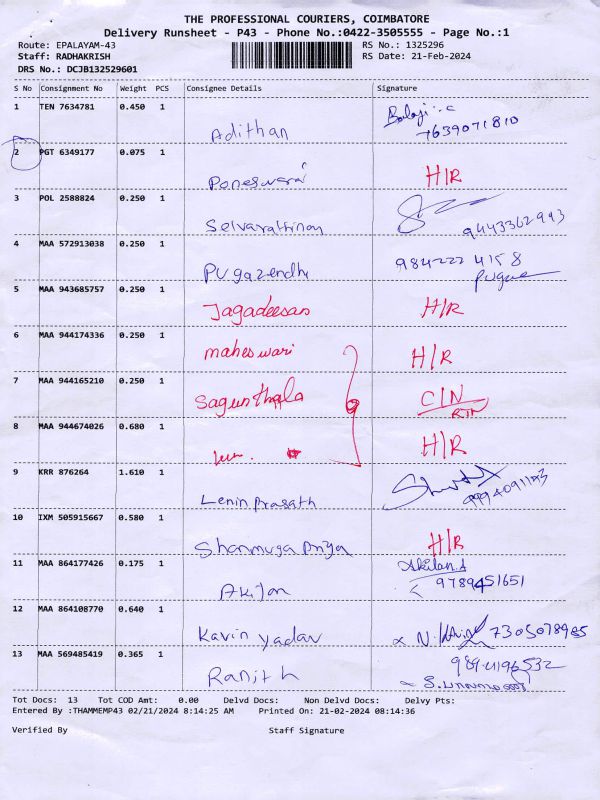 THE PROFESSIONAL COURIERS, COIMBATORE
Delivery Runsheet - P43 - Phone No.:0422-3505555 - Page No.:1
Route: EPALAYAM-43 RS No.: 1325296
Staff: RADHAKRISH RS Date: 21-Feb-2024
DRS No.: DCJB132529601
S No Consignment No Weight PCS Consignee Details Signature
1 TEN 7634781 0.450 1 Adithan Balaji
7639071810
2 PGT 6349177 0.075 1 Poneswari H/R
3 POL 2588824 0.250 1 Selvarathinam 9443362993
4 MAA 572913038 0.250 1 Pugazendhi 984222 4158
5 MAA 943685757 0.250 1 Jagadeesan H/R
6 MAA 944174336 0.250 1 maheswari H/R
7 MAA 944165210 0.250 1 Sagunthala C/N
RTN
8 MAA 944674026 0.680 1 H/R
9 KRR 876264 1.610 1 Lenin Prasath
10 IXM 505915667 0.580 1 Shanmuga Priya H/R
11 MAA 864177426 0.175 1 Akilan Akilan.A
9789451651
12 MAA 864108770 0.640 1 Kavin yadav 7305078985
13 MAA 569485419 0.365 1 Ranjith
Tot Docs: 13 Tot COD Amt: 0.00 Delvd Docs: Non Delvd Docs: Delvy Pts:
Entered By :THAMMEMP43 02/21/2024 8:14:25 AM Printed On: 21-02-2024 08:14:36
Verified By Staff Signature